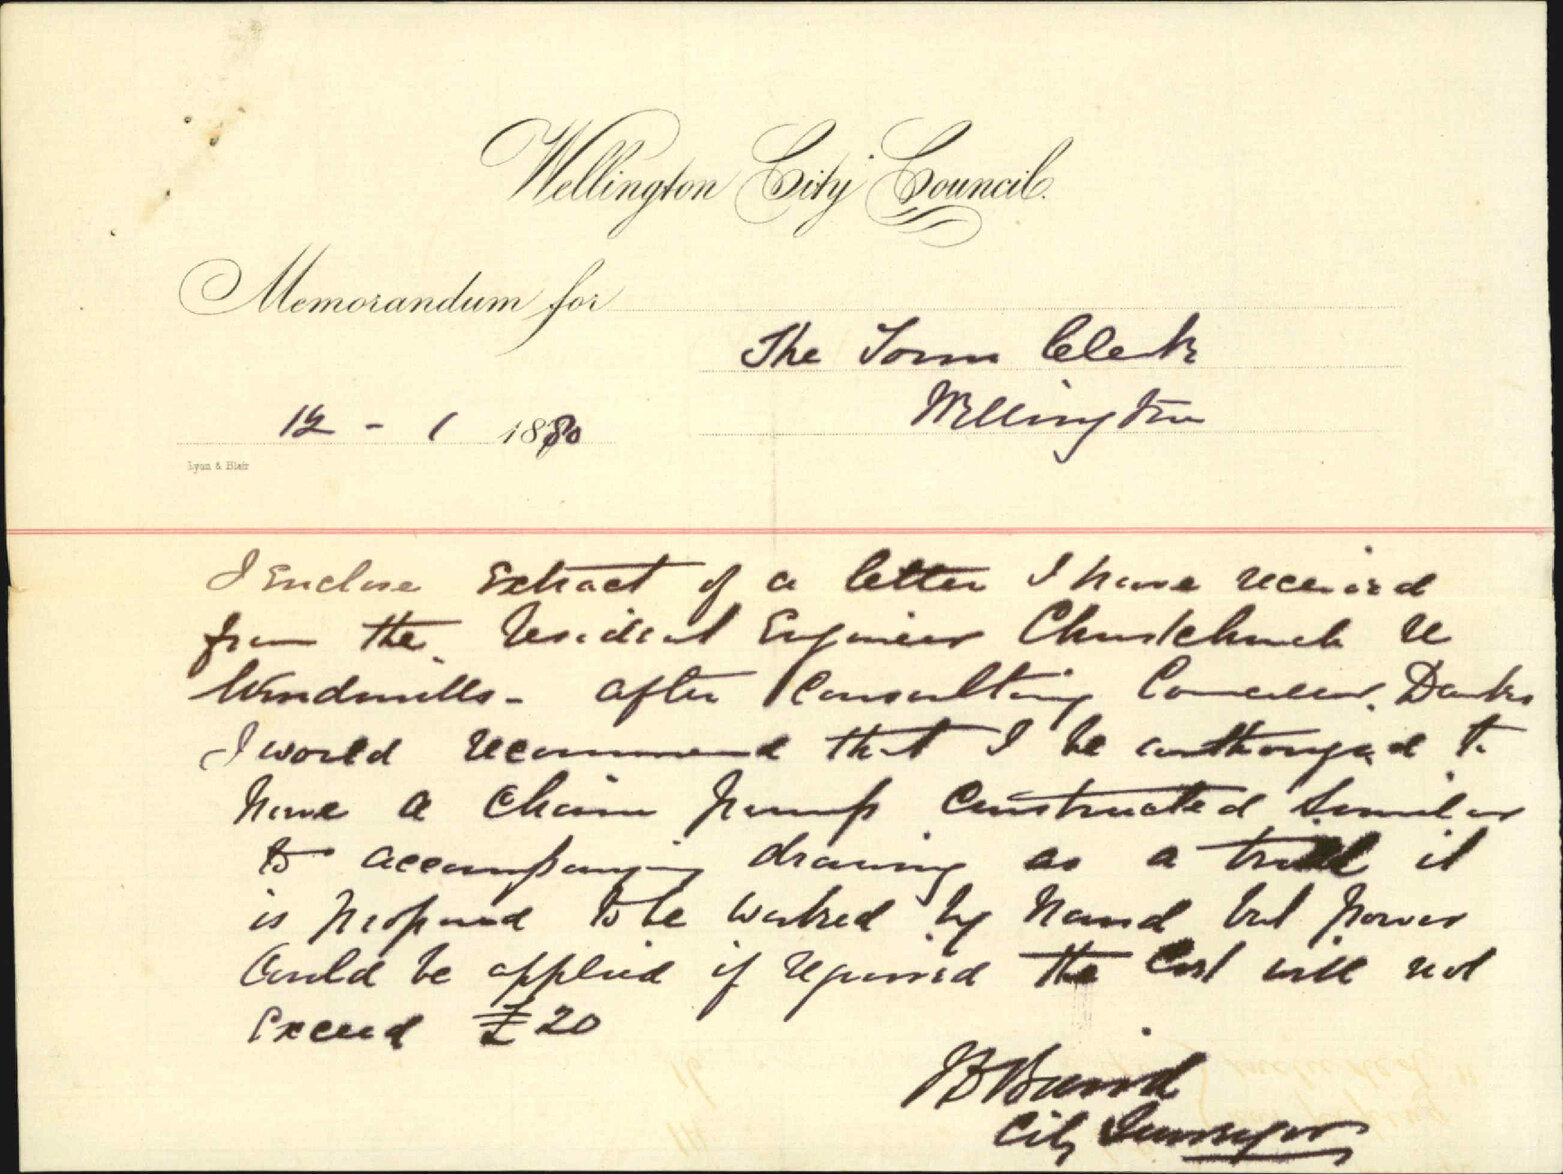 Wellington City Council.
Memorandum for
The Town Clerk
Wellington
12 - 1 1880
Lyon & Blair
I Enclose Extract of a letter I have received
from the Resident Engineer Christchurch re
Windmills - after Consulting Councillor Danks
I would recommend that I be authorized to
have a Chain pump Constructed Similar
to accompanying drawing as a trial it
is proposed to be worked by hand but power
Could be applied if required the Cost will not
Exceed £20
Baird
City Surveyor